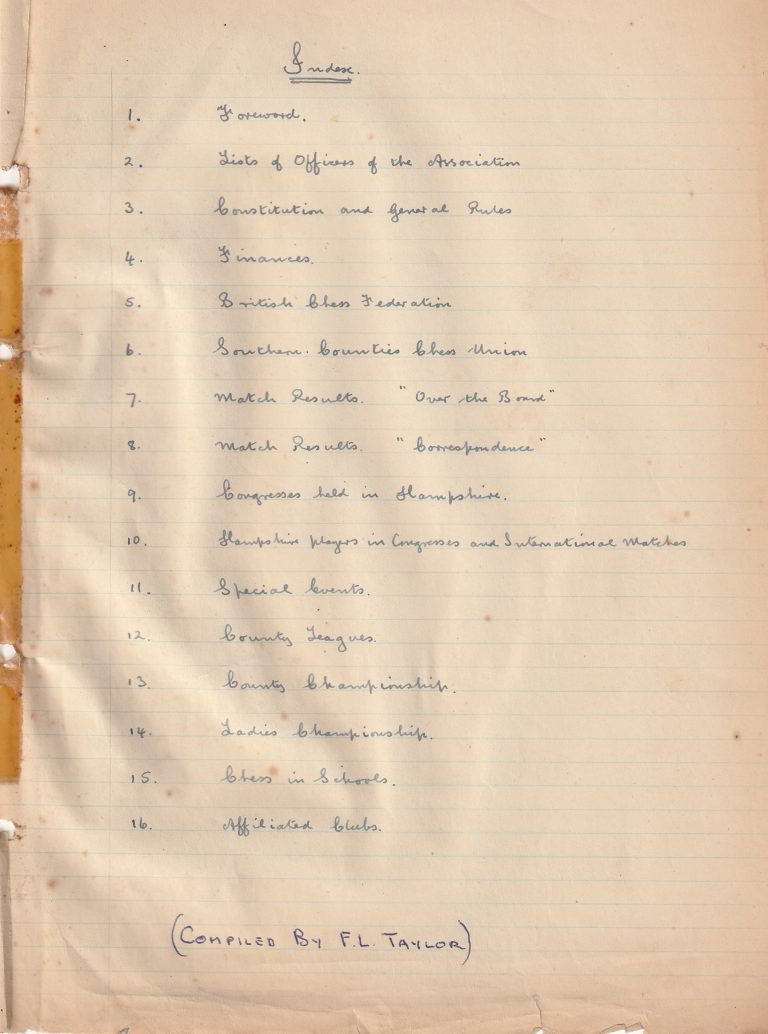 Index.
1. Foreword.
2. Lists of Officers of the Association
3. Constitution and General Rules
4. Finances.
5. British Chess Federation
6. Southern Counties Chess Union
7. Match Results. "Over the Board"
8. Match Results. "Correspondence"
9. Congresses held in Hampshire.
10. Hampshire players in Congresses and International Matches
11. Special Events.
12. County Leagues.
13. County Championship.
14. Ladies Championship.
15. Chess in Schools.
16. Affiliated Clubs.
(COMPILED BY F.L. TAYLOR)